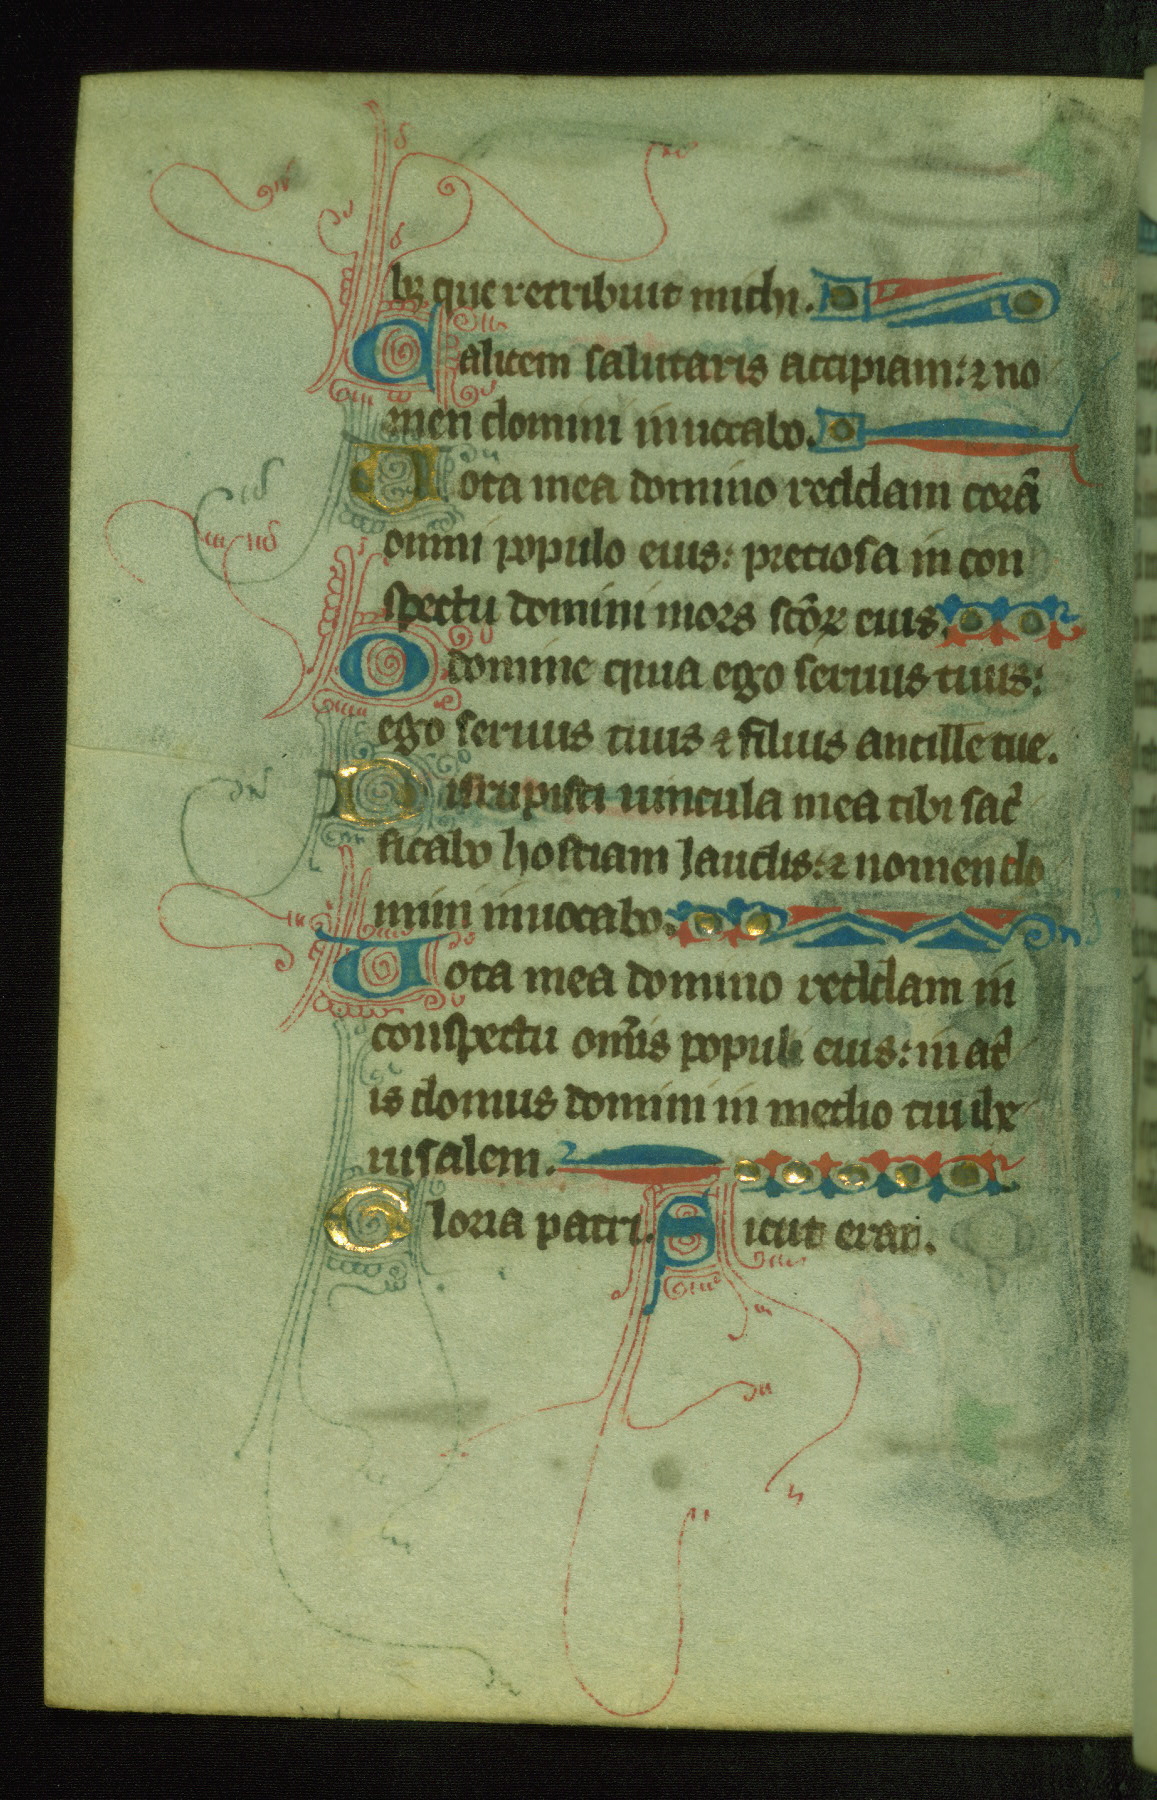 bꝫ que retribuit michi.
Calicem salutaris accipiam: ⁊ no
men domini inuocabo.
Uota mea domino reddam corā
omni populo eius: preciosa in con
spectu domini mors scōꝝ eius.
O domine quia ego seruus tuus:
ego seruus tuus ⁊ filius ancille tue.
Disrupisti uincula mea tibi sac̉
ficabo hostiam laudis: ⁊ nomen do
mini inuocabo.
Uota mea domino reddam in
conspectu om̄is populi eius: in at̉
is domus domini in medio tui ihr̄
usalem.
Gloria patri. Sicut erat.